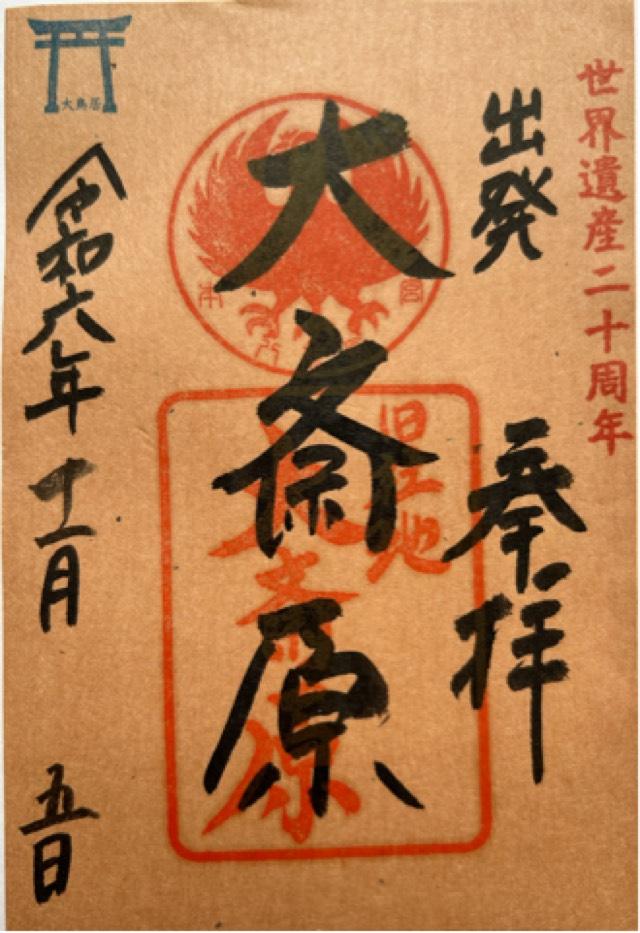 世界遺産二十周年
出発
奉拝
大斎原
旧社地
大斎原
本宮
令和六年十一月五日
大鳥居